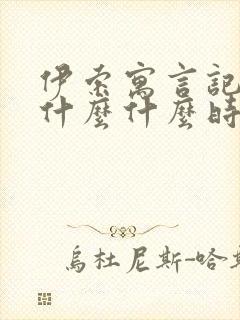 伊索寓言記
什麼什麼時
烏杜尼斯-哈斯